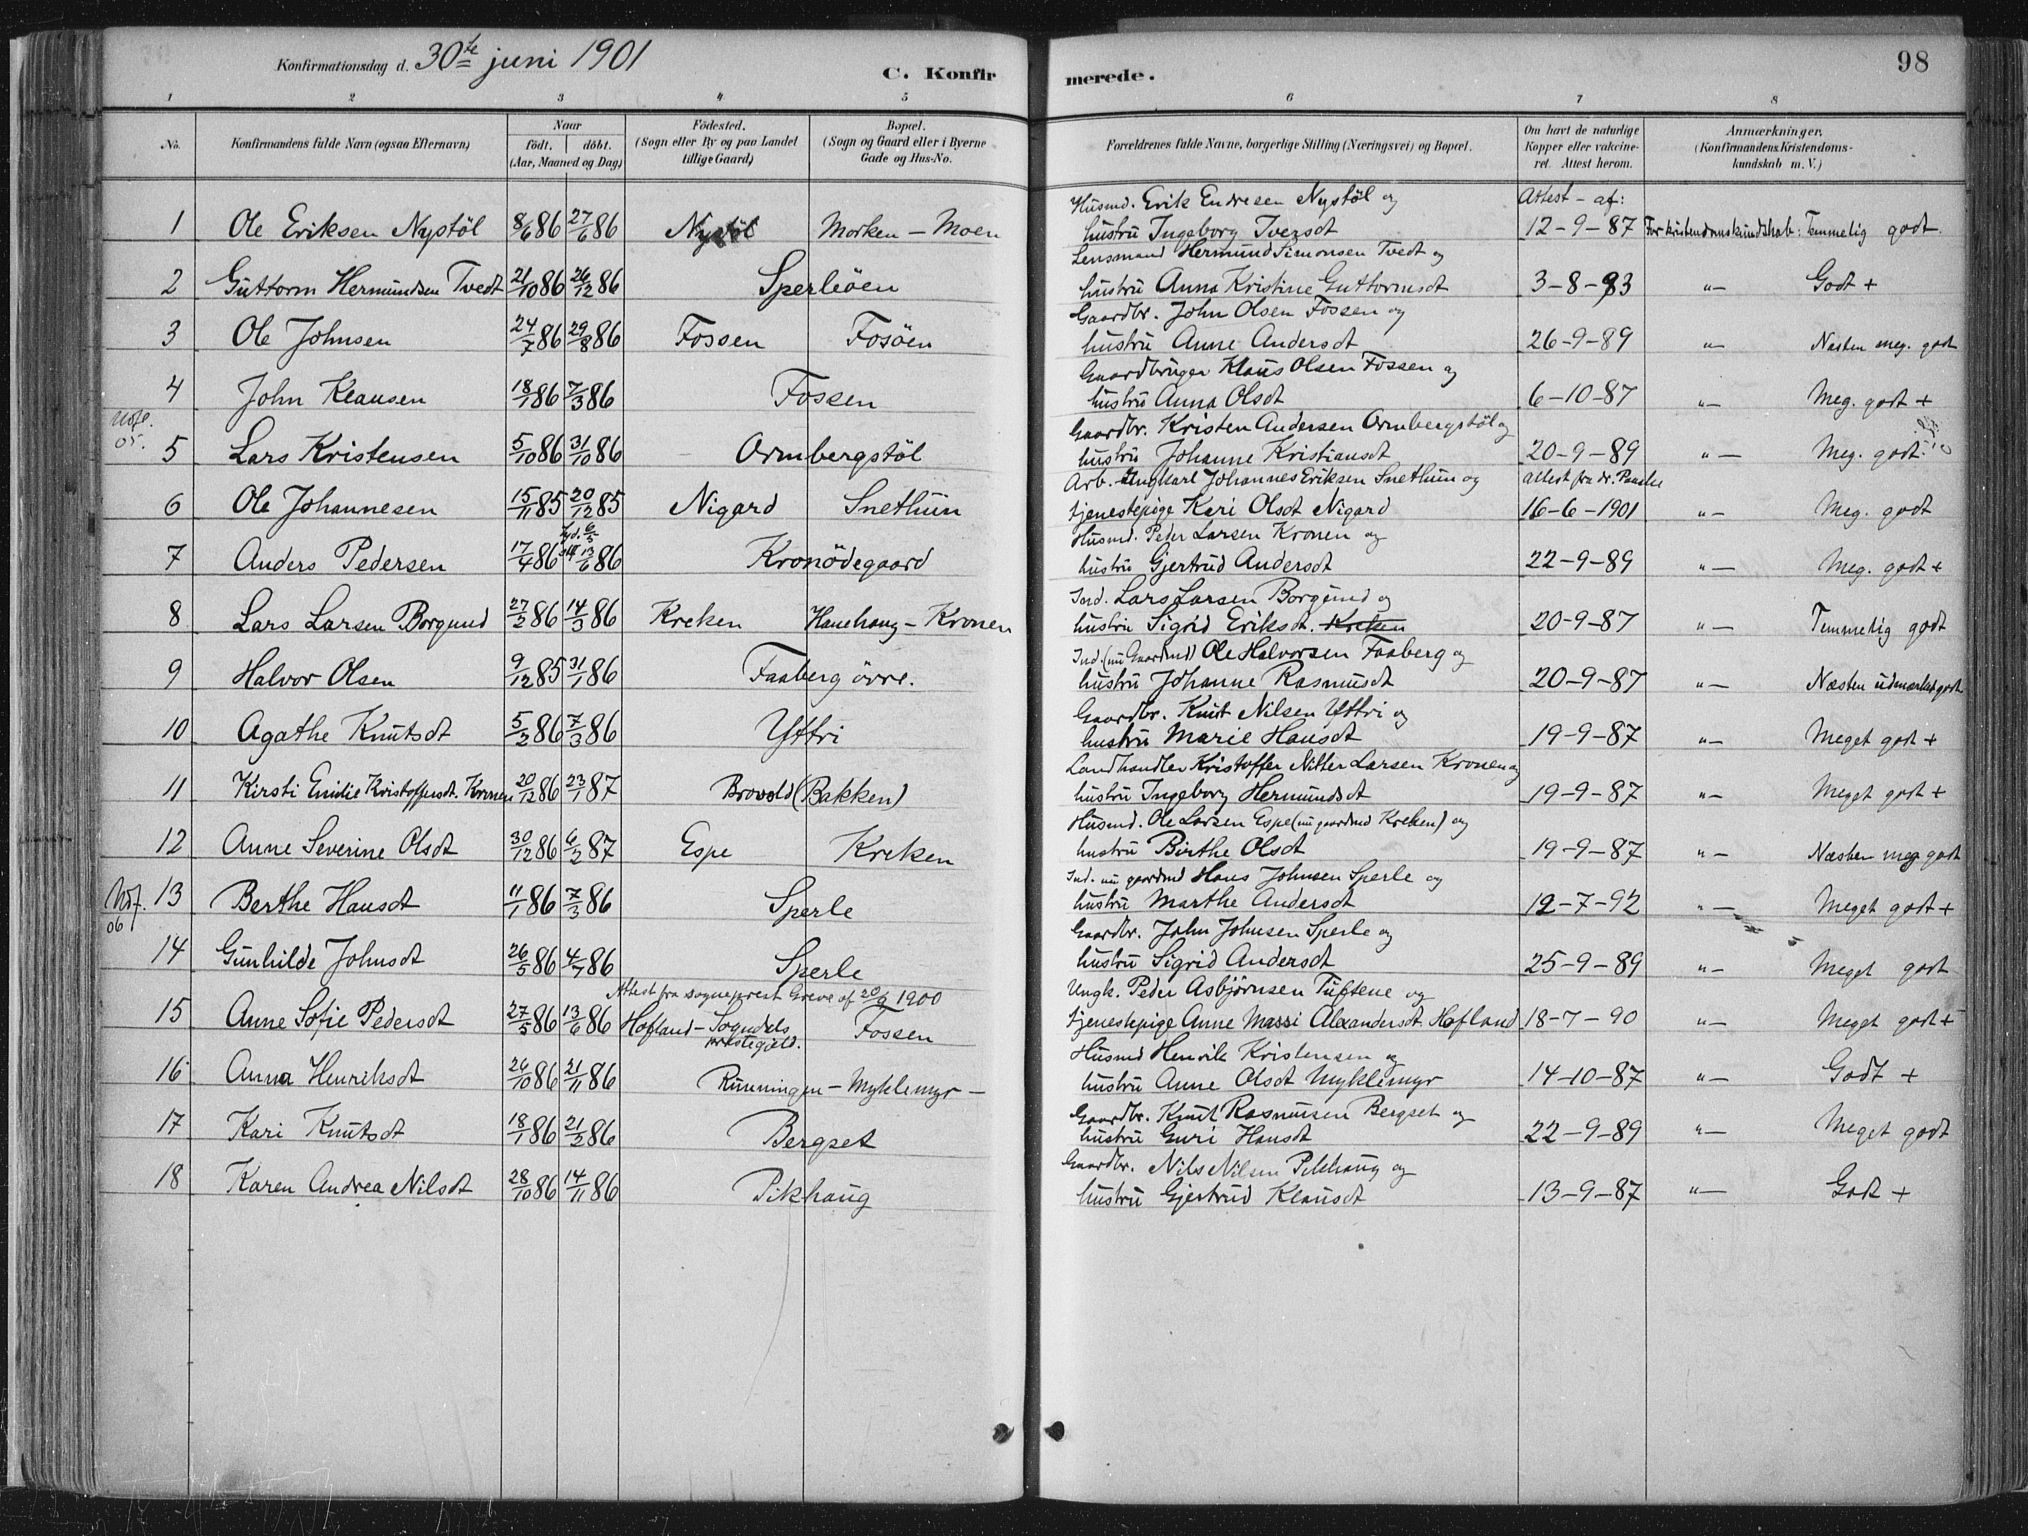 Konfirmationsdag d. 30te juni 1901
C. Konfirmerede.
98
1 2 3 4 5 6 7 8
No.
Konfirmandens fulde Navn (ogsaa Efternavn)
Naar
födt. döbt.
(Aar, Maaned og Dag)
Födested.
(Sogn eller By og paa Landet
tillige Gaard)
Bopæl.
(Sogn og Gaard eller i Byerne
Gade og Hus-No.
Forældrenes fulde Navne, borgerlige Stilling (Næringsvei) og Bopæl.
Om havt de naturlige
Kopper eller vakcine-
ret. Attest herom.
Anmærkninger.
(Konfirmandens Kristendoms-
kundskab m. V.)
Husmd. Erik Endresen Nystöl og Attest – af:
1 Ole Eriksen Nystöl 8/6 86 27/6 86 Nystöl Morken – Moen hustru Ingeborg Iversdt 12-9-87 For kristendomskundskab: Temmelig godt.
Lensmand Hermund Simonsen Tvedt og
2 Guttorm Hermundsen Tvedt 21/10 86 26/12 86 Sperleöen hustru Anna Kristine Guttormsdt 3-8-93 „— Godt +
Gaardbr. John Olsen Fossen og
3 Ole Johnsen 24/7 86 29/8 86 Fossen Fosöen hustru Anne Andersdt 26-9-89 „— Næsten meg. godt
Gaardbruger Klaus Olsen Fossen og
4 John Klausen 18/1 86 7/3 86 Fossen hustru Anna Olsdt 6-10-87 „— Meg. godt +
Gaardbr. Kristen Andersen Ormbergstöl og
05. 5 Lars Kristensen 5/10 86 31/10 86 Ormbergstöl hustru Johanne Kristiansdt 20-9-89 „— Meg. godt
Arb. Ungkarl Johannes Eriksen Snethun og attest fra dr.
6 Ole Johannesen 15/11 85 20/12 85 Nigard Snethun tjenestepige Kari Olsdt Nigard 16-6-1901 „— Meg. godt
Husmd. Peter Larsen Kronen og
7 Anders Pedersen 17/4 86 13/6 86 Kronödegaard hustru Gjertrud Andersdt 22-9-89 „— Meg. godt +
Ind. Lars Larsen Borgund og
8 Lars Larsen Borgund 27/2 86 14/3 86 Kreken Hanehaug – Kronen hustru Sigrid Eriksdt. Kreken 20-9-87 „— Temmelig godt
Ind. (nu Gaardmd) Ole Halvorsen Faaberg og
9 Halvor Olsen 9/12 85 31/1 86 Faaberg övre. hustru Johanne Rasmusdt 20-9-87 „— Næsten udmærket godt
Gaardbr. Knut Nilsen Yttri og
10 Agathe Knutsdt 5/2 86 7/3 86 Yttri hustru Marie Hansdt 19-9-87 „— Meget godt +
Landhandler Kristoffer Nitter Larsen Kronen og
11 Kirsti Emilie Kristoffersdt. Kronen 20/12 86 23/1 87 Brovold (Bakken) hustru Ingeborg Hermundsdt 19-9-87 „— Meget godt +
Husmd. Ole Larsen Espe (nu gaardmd Kreken) og
12 Anne Severine Olsdt 30/12 86 6/2 87 Espe Kreken hustru Birthe Olsdt 19-9-87 „— Næsten meg godt
Ind. nu gaardmd Hans Johnsen Sperle og
06 13 Berthe Hansdt 11/1 86 7/3 86 Sperle hustru Marthe Andersdt 12-7-92 „— Meget godt +
Gaardbr. John Johnsen Sperle og
14 Gunhilde Johnsdt 26/5 86 4/7 86 Sperle hustru Sigrid Andersdt 25-9-89 „— Meget godt
Attest fra sogneprest Greve af 20/9 1900 Ungk. Peder Asbjörnsen Tuftene og
15 Anne Sofie Pedersdt 27/5 86 13/6 86 Hofland – Sogndals prestegjeld. Fossen tjenestepige Anne Massi Alexandersdt Hofland 18-7-90 „— Meget godt +
Husmd Henrik Kristensen og
16 Anna Henriksdt 26/10 86 21/11 86 Runningen – Myklemyr – hustru Anne Olsdt Myklemyr 14-10-87 „— Godt +
Gaardbr. Knut Rasmusen Bergset og
17 Kari Knutsdt 18/1 86 21/2 86 Bergset hustru Guri Hansdt 22-9-89 „— Meget godt
Gaardbr. Nils Nilsen Pikhaug og
18 Karen Andrea Nilsdt 28/10 86 14/11 86 Pikhaug hustru Gjertrud Klausdt 13-9-87 „— Godt +